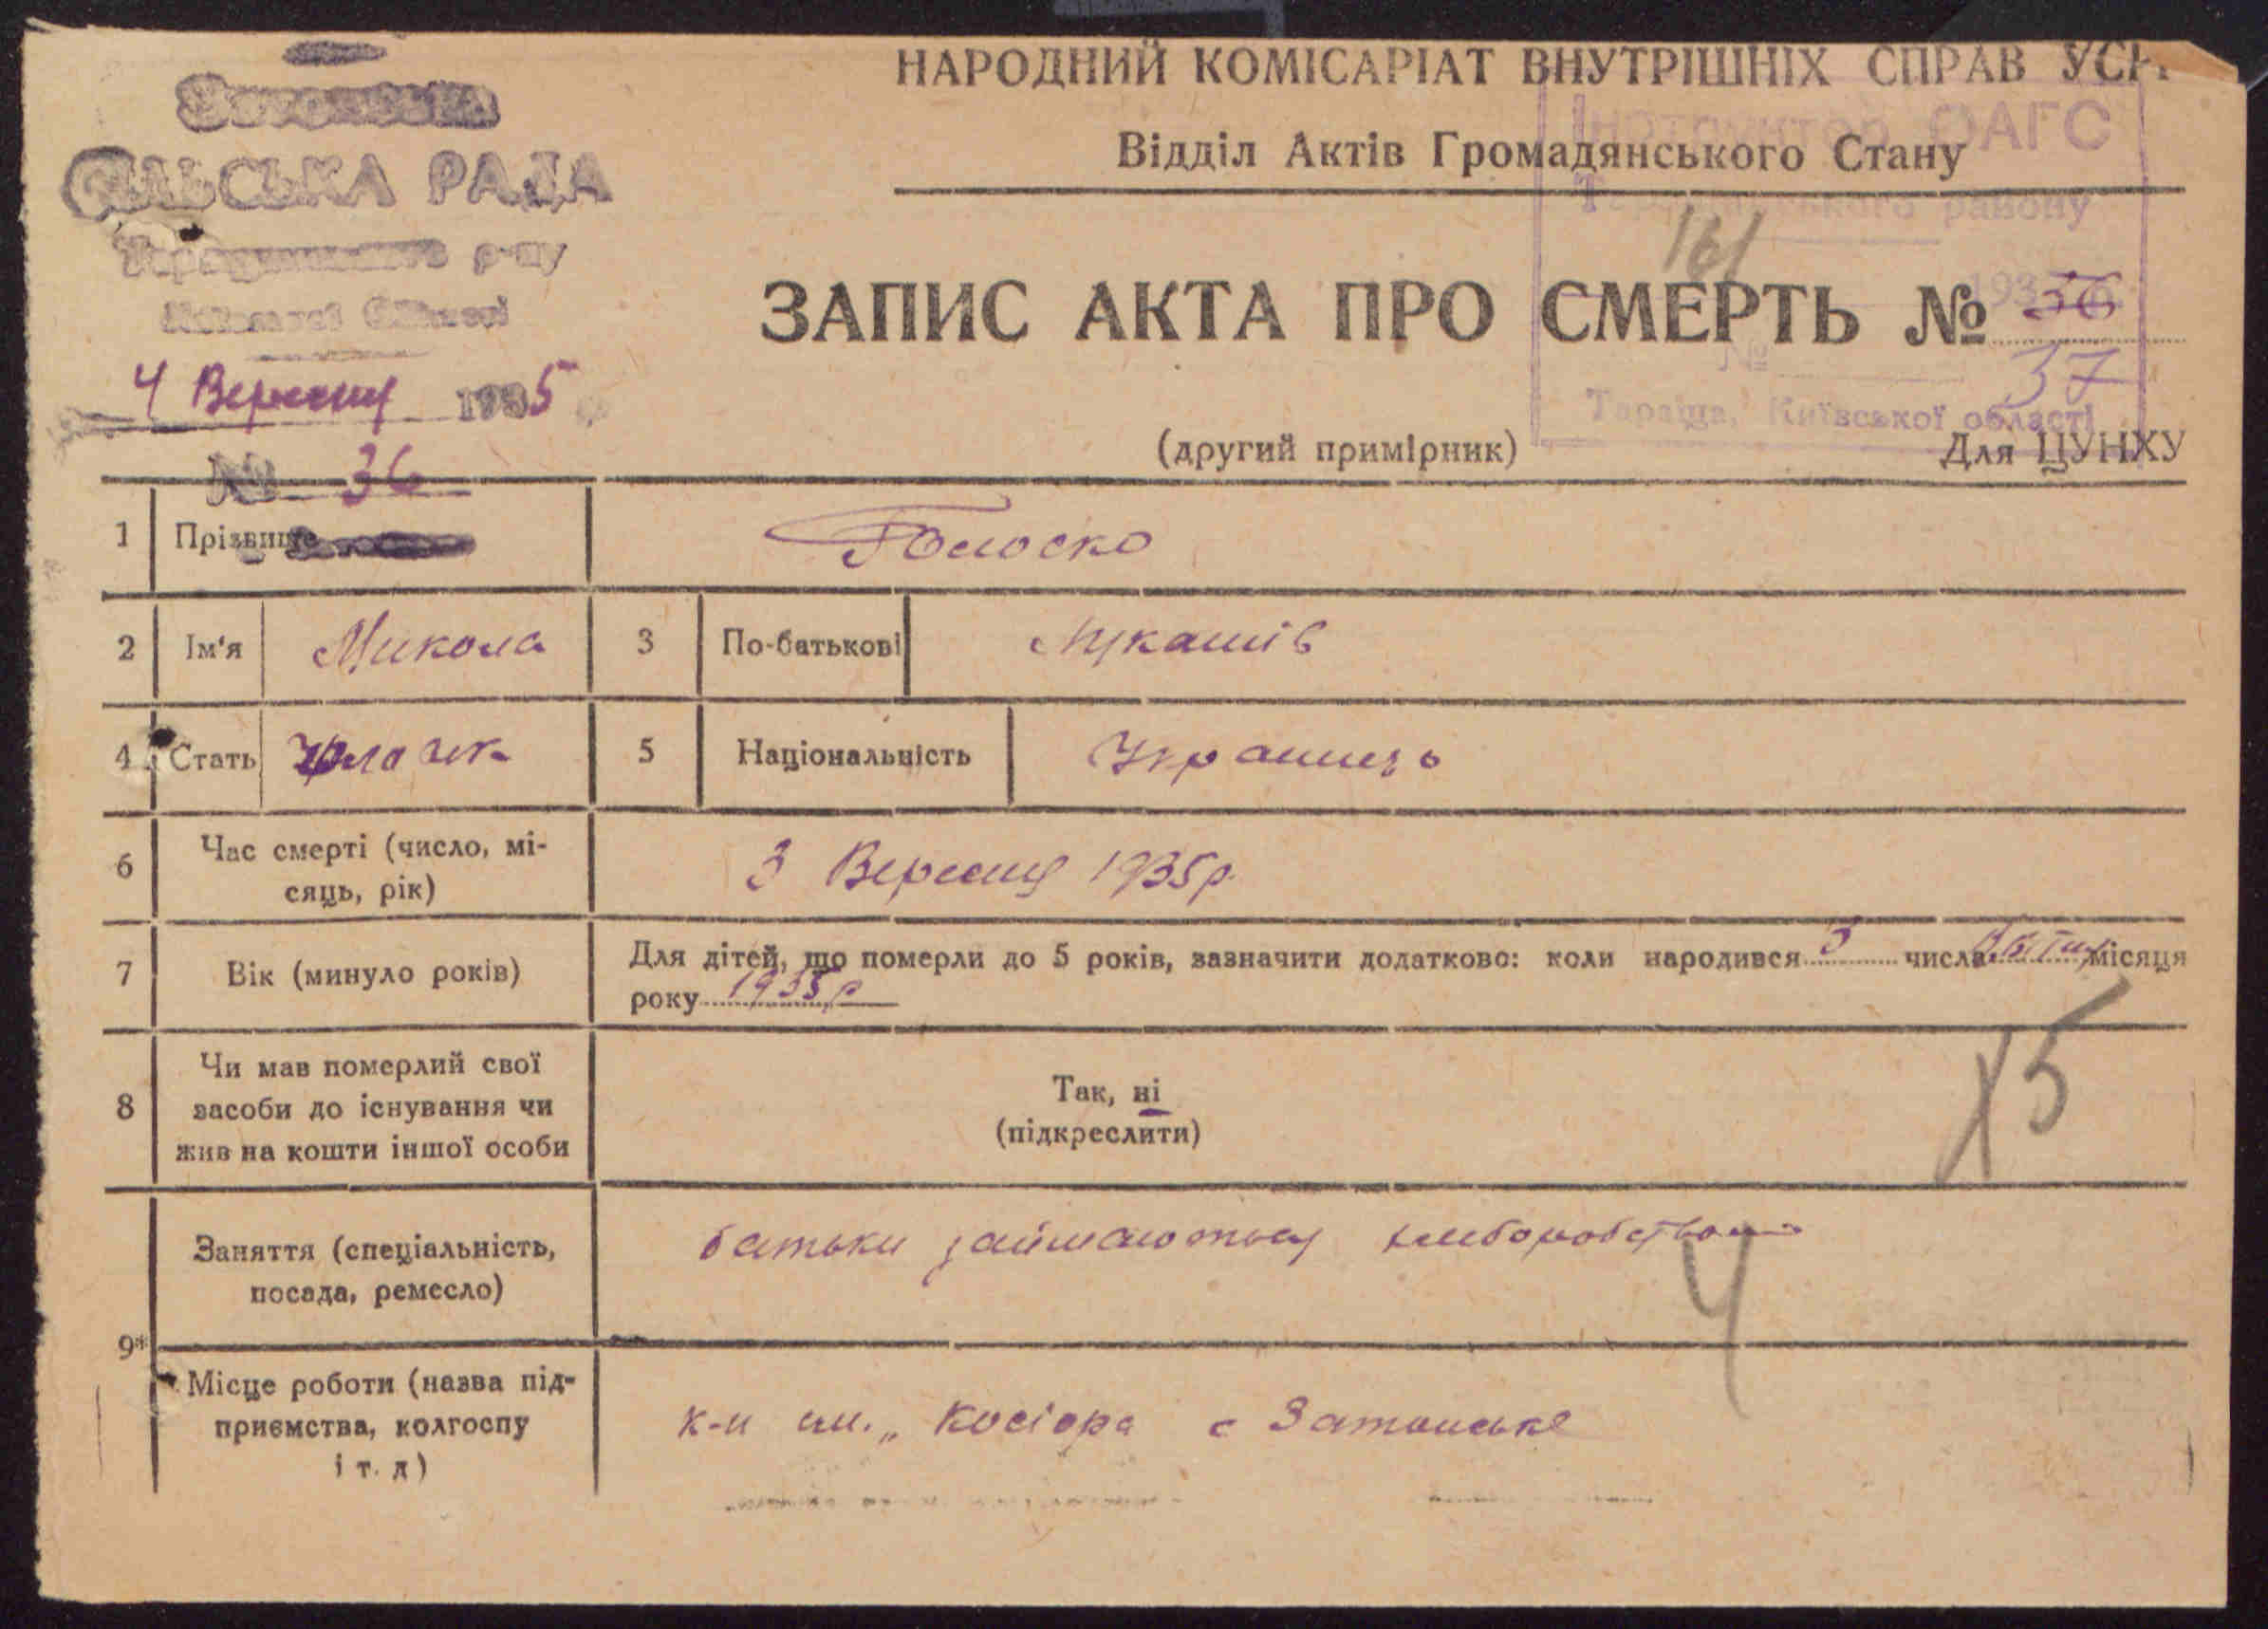 НАРОДНИЙ КОМІСАРІАТ ВНУТРІШНІХ СПРАВ УСР
Відділ Актів Громадянського Стану
СІЛЬСЬКА РАДА
р-ну
Інструктор ОАГС
району
Тараща, Київської області
161
ЗАПИС АКТА ПРО СМЕРТЬ № 36
37
4 Вересня 1935
№ 36
(другий примірник)
Для ЦУНХУ
1 Прізвище
2 Ім'я Микола 3 По-батькові Лукашів
4 Стать 5 Національність Українець
6 Час смерті (число, мі-
сяць, рік) 3 Вересня 1935р.
7 Вік (минуло років) Для дітей, що померли до 5 років, зазначити додатково: коли народився 3 числа місяця
року 1935р
8 Чи мав померлий свої
засоби до існування чи
жив на кошти іншої особи
Так, ні
(підкреслити)
15
9* Заняття (спеціальність,
посада, ремесло) батьки займаються хліборобством
4
Місце роботи (назва під-
приємства, колгоспу
і т. д) к-п ім. „Косіора с Затонське